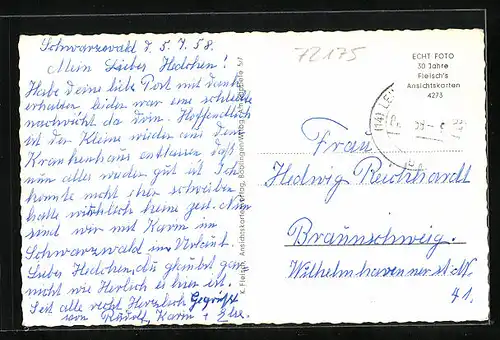 Schwarzwald d. 5.7.58.
Mein Liebes Hedchen!
Habe deine liebe Post mit dank
erhalten leider war eine schlechte
nachricht da drin. Hoffendlich
ist der Kleine wieder aus dem
Krankenhaus entlassen daß
nun alles wieder gut ist Ich
konnte nicht eher schreiben
hatte wirklich keine zeit. Nun
sind wir mit Karin im
Schwarzwald im Urlaub.
Liebes Hedchen, du glaubst gar
nicht wie Herlich es hier ist.
Seit alle recht Herzlich Gegrüßt
von Rudolf, Karin + Else.
K. Fleisch, Ansichtskartenverlag,
72175
ECHT FOTO
30 Jahre
Fleisch's
Ansichtskarten
4273
Frau
Hedwig Reichhardt
Braunschweig.
Wilhelmhavenerst. Nr.
41.